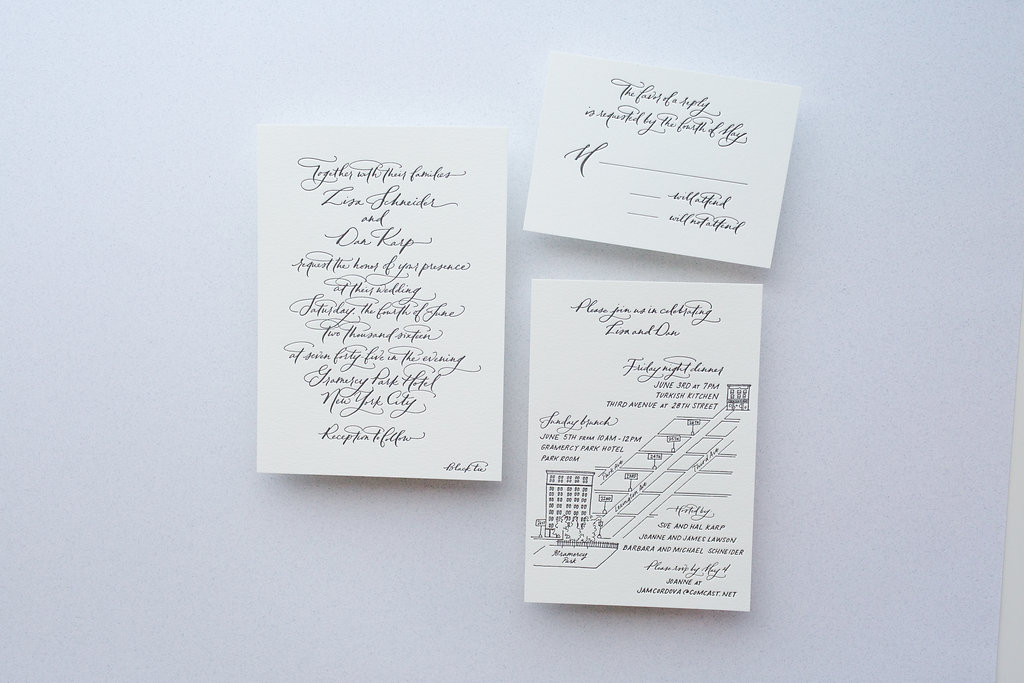 Together with their families
Lisa Schneider
and
Dan Karp
request the honor of your presence
at their wedding
Saturday, the fourth of June
Two thousand sixteen
at seven forty five in the evening
Gramercy Park Hotel
New York City
Reception to follow
Black tie
The favor of a reply
is requested by the fourth of May
M
will attend
will not attend
Please join us in celebrating
Lisa and Dan
Friday night dinner
JUNE 3RD AT 7PM
TURKISH KITCHEN
THIRD AVENUE AT 28TH STREET
Sunday brunch
JUNE 5TH FROM 10AM-12PM
GRAMERCY PARK HOTEL
PARK ROOM
Park Ave
Lexington Ave
Third Ave
Gramercy
Park
Hosted by
SUE AND HAL KARP
JOANNE AND JAMES LAWSON
BARBARA AND MICHAEL SCHNEIDER
Please rsvp by May 4
JOANNE AT
JAMCORDOVA@COMCAST.NET